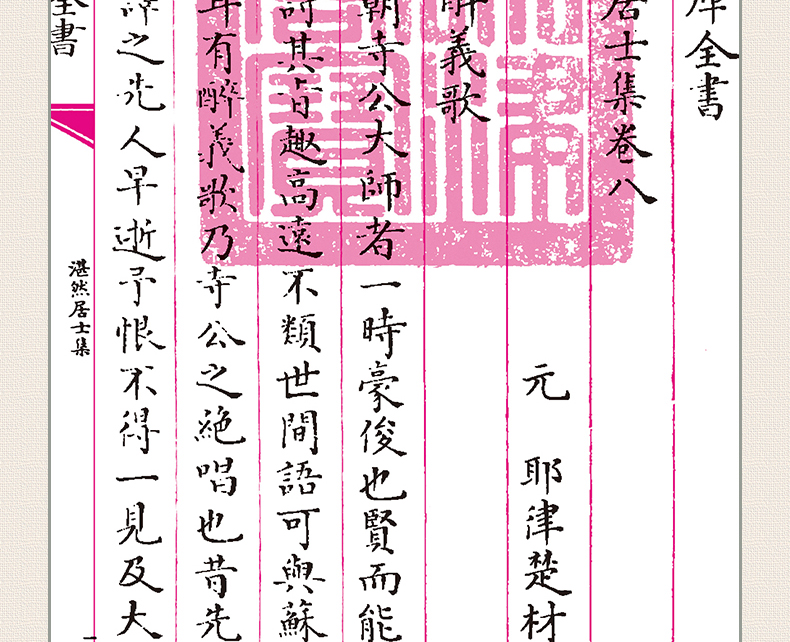 庫全書
居士集卷八
元　耶律楚材
醉義歌
朝寺公大師者一時豪俊也賢而能
詩其旨趣高遠不類世間語可與蘇
年有醉義歌乃寺公之絶唱也昔先
譯之先人早逝予恨不得一見及大
全書
湛然居士集